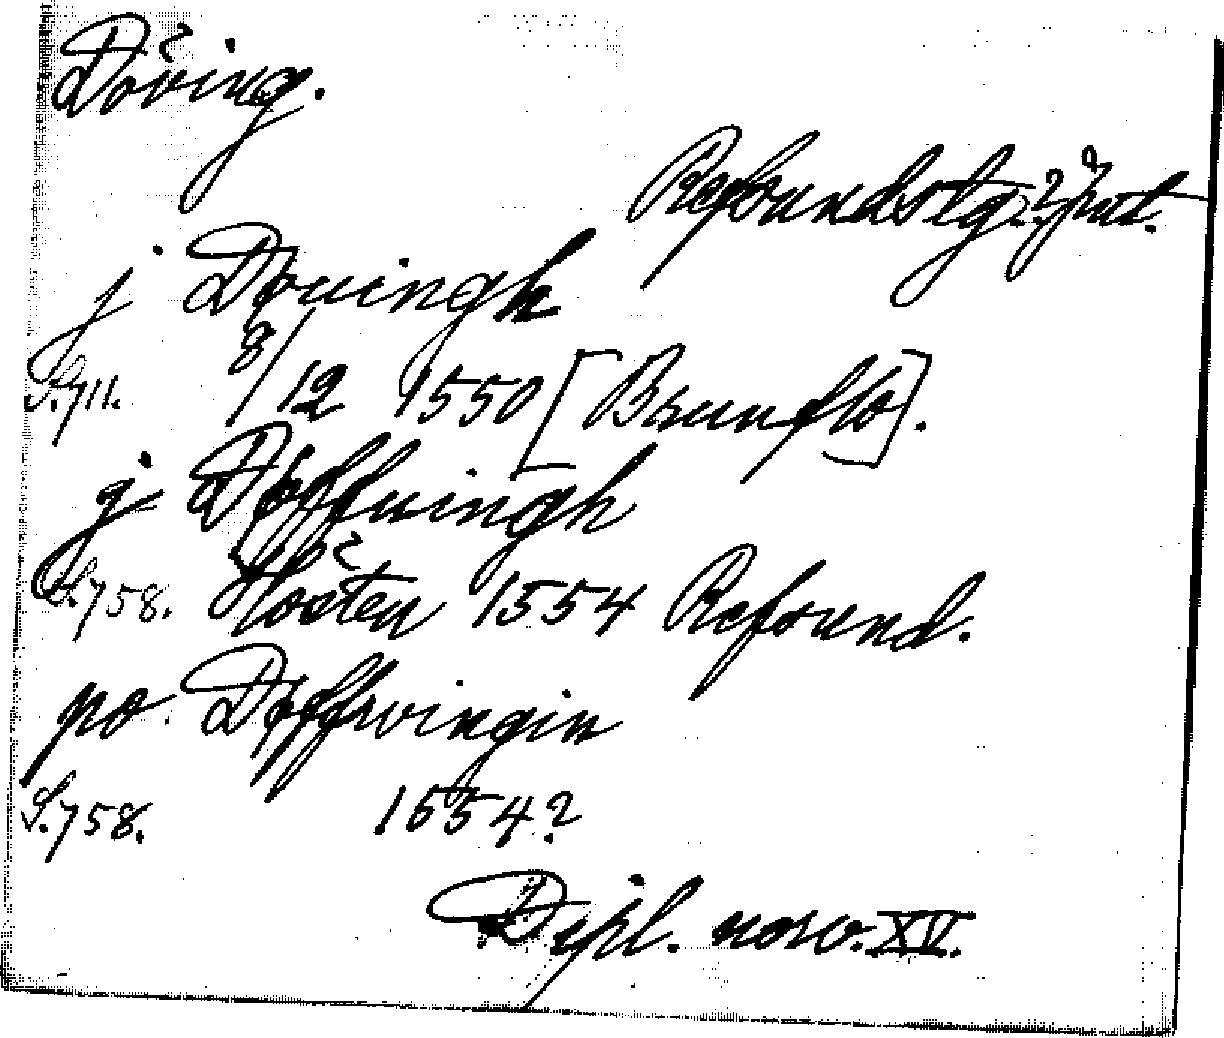 Döving.
Refsundstg.? Jmt.
j Døuingh
S.711. 8/12 1550 [Brunflo].
j Døffuingh
S.758. Hösten 1554 Refsund.
po Døffrvingin
S.758. 1554?
Dipl. norv. XV.